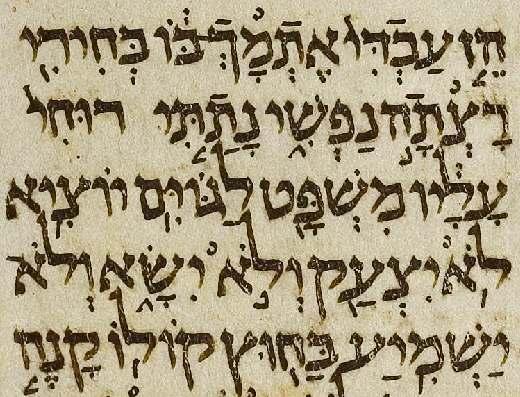 הֵן עַבְדִּי אֶתְמָךְ־בּוֹ בְּחִירִי
רָצְתָה נַפְשִׁי נָתַתִּי רוּחִי
עָלָיו מִשְׁפָּט לַגּוֹיִם יוֹצִיא
לֹא יִצְעַק וְלֹא יִשָּׂא וְלֹא
יַשְׁמִיעַ בַּחוּץ קוֹלוֹ קָנֶה